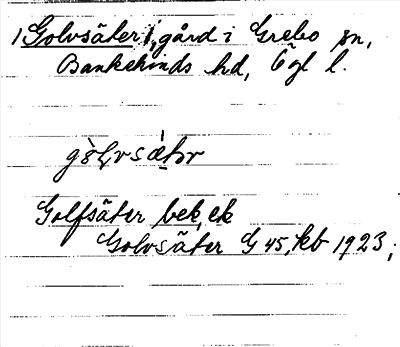 Golvsäter, gård i Grebo sn,
Bankekinds hd, Ögl l.
Golfsäter bek, ek
Golvsäter G 45, kb 1923;